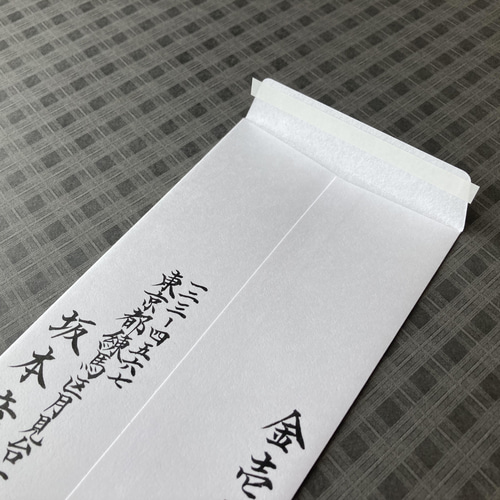 金壱
一二三ー四五六七
東京都練馬区月見台
坂本